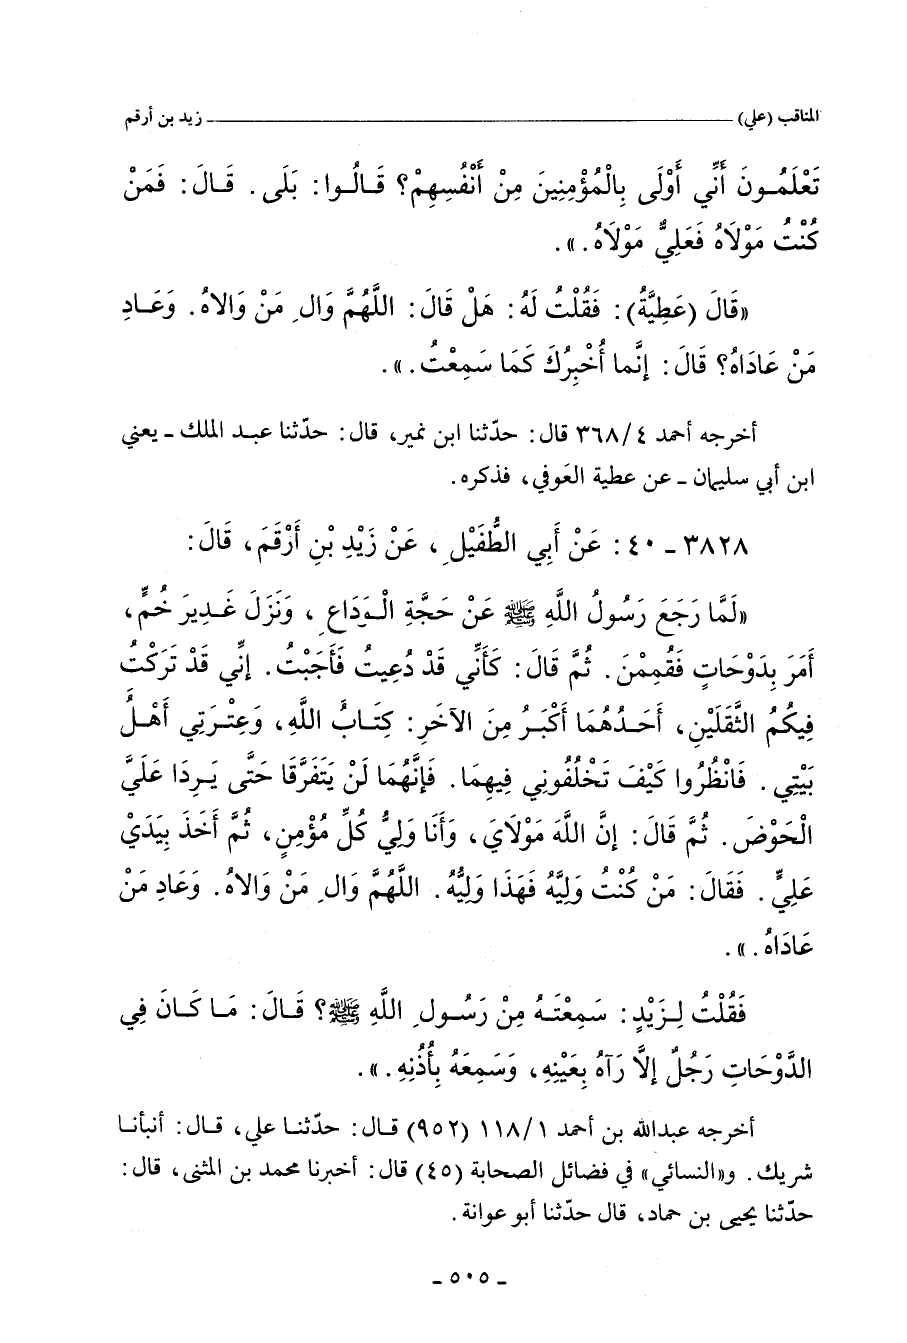 المناقب (علي) ــــــــــ زيد بن أرقم
تَعْلَمُونَ أَنِّي أَوْلَى بِالْمُؤْمِنِينَ مِنْ أَنْفُسِهِمْ؟ قَالُوا: بَلَى. قَالَ: فَمَنْ
كُنْتُ مَوْلَاهُ فَعَلِيٌّ مَوْلَاهُ.».
«قَالَ (عَطِيَّةُ): فَقُلْتُ لَهُ: هَلْ قَالَ: اللَّهُمَّ وَالِ مَنْ وَالاهُ. وَعَادِ
مَنْ عَادَاهُ؟ قَالَ: إنَّما أُخْبِرُكَ كَمَا سَمِعْتُ.».
أخرجه أحمد ٤/٣٦٨ قال: حدّثنا ابن نمير، قال: حدّثنا عبد الملك ـ يعني
ابن أبي سليمان ـ عن عطية العَوفي، فذكره.
٣٨٢٨ ـ ٤٠: عَنْ أَبِي الطُّفَيْلِ، عَنْ زَيْدِ بْنِ أَرْقَمَ، قَالَ:
«لَمَّا رَجَعَ رَسُولُ اللَّهِ ﷺ عَنْ حَجَّةِ الْوَدَاعِ، وَنَزَلَ غَدِيرَ خُمٍّ،
أَمَرَ بِدَوْحَاتٍ فَقُمِمْنَ. ثُمَّ قَالَ: كَأَنِّي قَدْ دُعِيتُ فَأَجَبْتُ. إنِّي قَدْ تَرَكْتُ
فِيكُمُ الثَّقَلَيْنِ، أَحَدُهُمَا أَكْبَرُ مِنَ الآخَرِ: كِتَابُ اللَّهِ، وَعِتْرَتِي أَهْلُ
بَيْتِي. فَانْظُرُوا كَيْفَ تَخْلُفُونِي فِيهِمَا. فَإنَّهُمَا لَنْ يَتَفَرَّقَا حَتَّى يَرِدَا عَلَيَّ
الْحَوْضَ. ثُمَّ قَالَ: إنَّ اللَّهَ مَوْلَايَ، وَأَنَا وَلِيُّ كُلِّ مُؤْمِنٍ، ثُمَّ أَخَذَ بِيَدَيْ
عَلِيٍّ. فَقَالَ: مَنْ كُنْتُ وَلِيَّهُ فَهَذَا وَلِيُّهُ. اللَّهُمَّ وَالِ مَنْ وَالاهُ. وَعَادِ مَنْ
عَادَاهُ.».
فَقُلْتُ لِزَيْدٍ: سَمِعْتَهُ مِنْ رَسُولِ اللَّهِ ﷺ؟ قَالَ: مَا كَانَ فِي
الدَّوْحَاتِ رَجُلٌ إلَّا رَآهُ بِعَيْنِهِ، وَسَمِعَهُ بِأُذُنِهِ.».
أخرجه عبدالله بن أحمد ١/١١٨ (٩٥٢) قال: حدّثنا علي، قال: أنبأنا
شريك. و«النسائي» في فضائل الصحابة (٤٥) قال: أخبرنا محمد بن المثنى، قال:
حدّثنا يحيى بن حماد، قال حدّثنا أبو عوانة.
ـ ٥٠٥ ـ